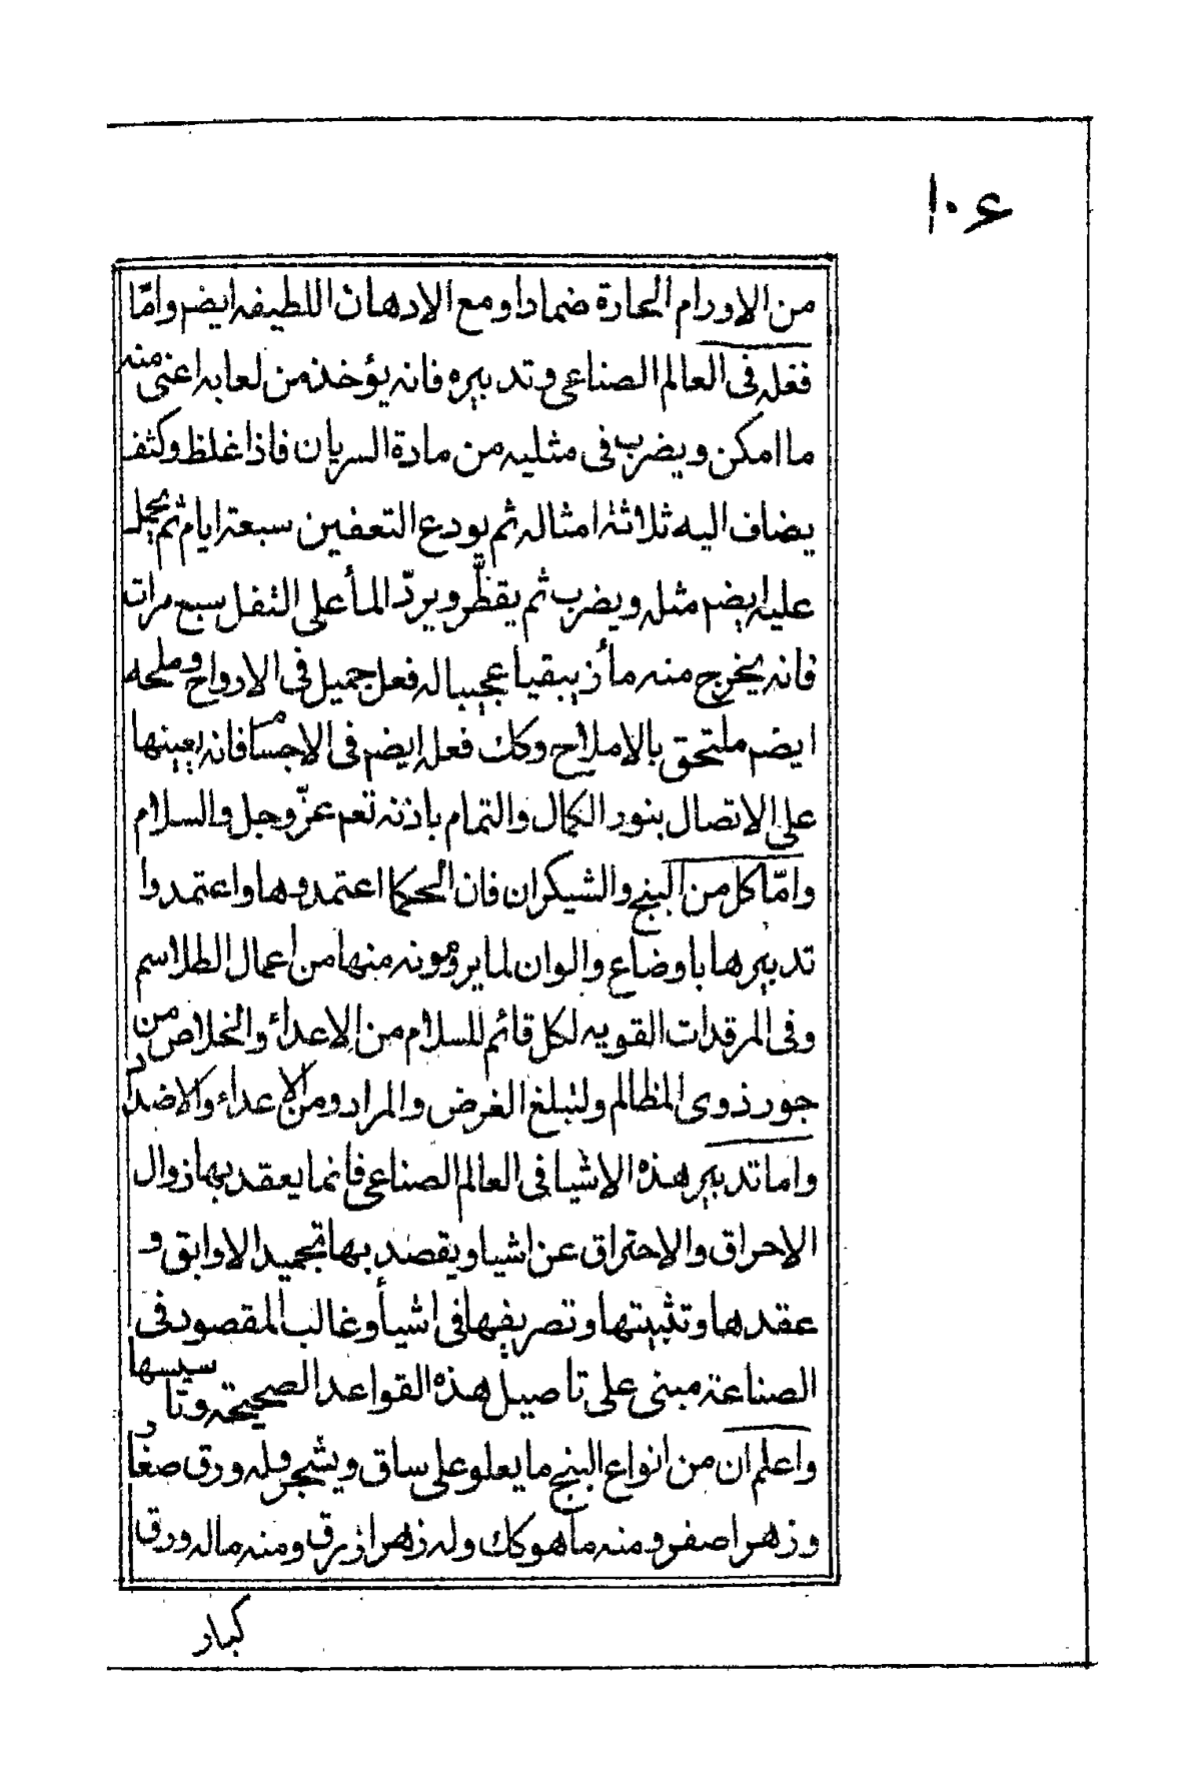 ١٠٤
من الاورام الحارة ضمادا ومع الادهان اللطيفه ايضم وامّا
فعله فى العالم الصناعى وتدبيره فانه يؤخذ من لعابه اعنى منه
ما امكن ويضرب فى مثليه من مادة السريان فاذا غلظ وكثف
يضاف اليه ثلاثة امثاله ثم يودع التعفين سبعة ايام ثم يجعل
عليه ايضم مثله ويضرب ثم يقطّر ويردّ المأ على الثفل سبع مرات
فانه يخرج منه مأ زيبقيا عجيبا له فعل جميل فى الارواح وملحه
ايضم ملتحق بالاملاح وكك فعله ايضم فى الاجسام فانه يعينها
على الاتصال بنور الكمال والتمام باذنه تعم عزّ وجل والسلام
وامّا كل من البنج والشيكران فان الحكما اعتمدوها واعتمدوا
تدبيرها باوضاع والوان لما يرومونه منها من اعمال الطلاسم
وفى المرقدات القويه لكل قائم للسلام من الاعداء والخلاص من
جور ذوى المظالم ولتبلغ الغرض والمراد ومن الاعداء والاضداد
واما تدبير هذه الاشيا فى العالم الصناعى فانما يعقد بها زوال
الاحراق والاحتراق عن اشيا ويقصد بها تجميد الاوابق و
عقدها وتثبيتها وتصريفها فى اشيأ وغالب المقصود فى
الصناعة مبنى على تاصيل هذه القواعد الصحيحة وتاسيسها
واعلم ان من انواع البنج ما يعلو على ساق ويشجر وله ورق صغار
وزهر اصفر ومنه ما هو كك وله زهر ازرق ومنه ما له ورق
كبار